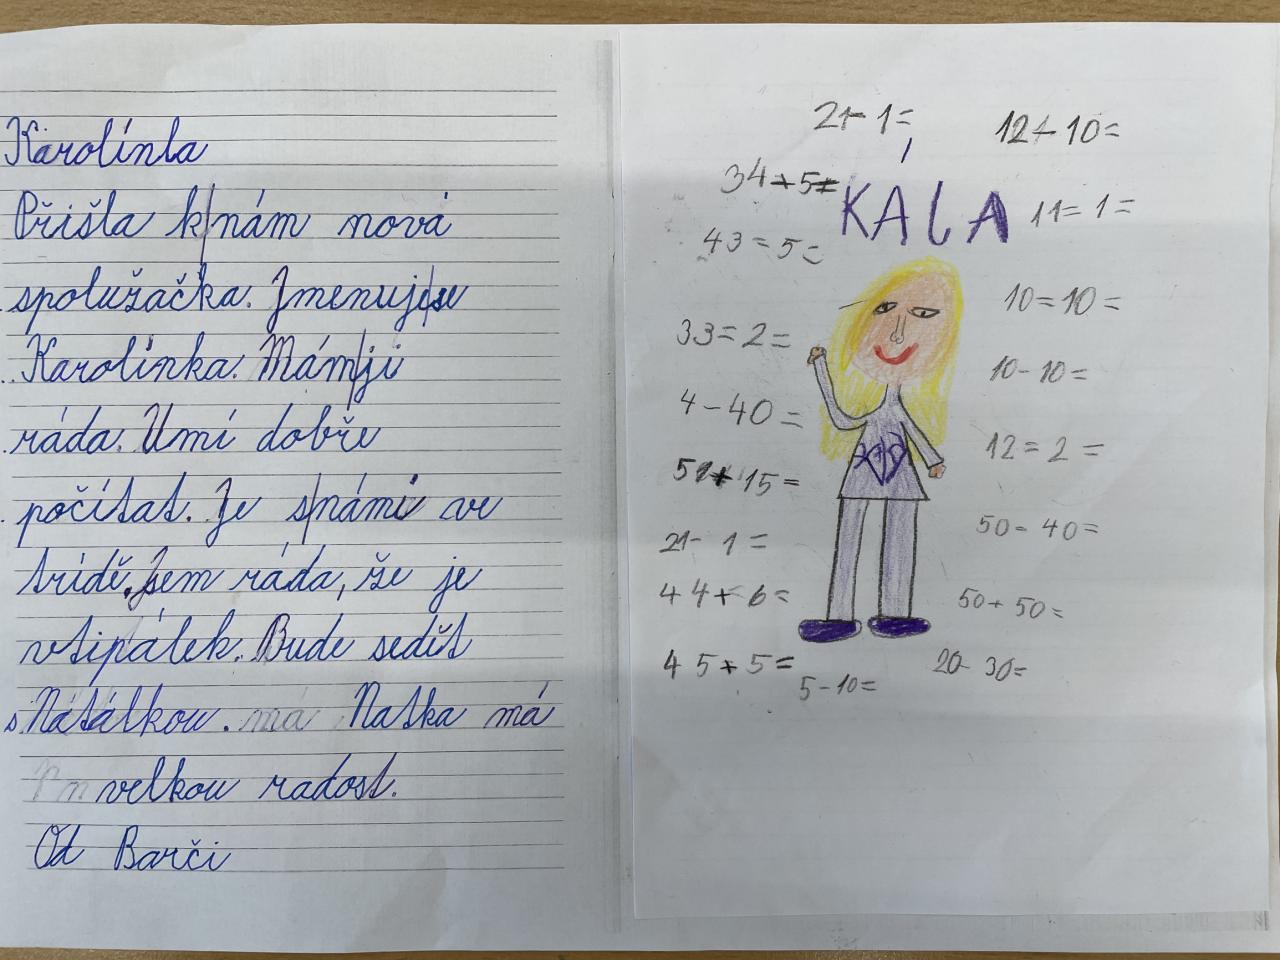 Karolínka
Přišla k nám nová
spolužačka. Jmenuje se
Karolínka. Mám ji
ráda. Umí dobře
počítat. Je s námi ve
třídě. Jsem ráda, že je
vtipálek. Bude sedět
s Natálkou. má Natka má
velkou radost.
Od Barči
21-1=
12+10=
34+5=
KÁLA
11=1=
43=5=
10=10=
33=2=
10-10=
4-40=
12=2=
51+15=
50-40=
21-1=
44+6=
50+50=
45+5=
5-10=
20-30=